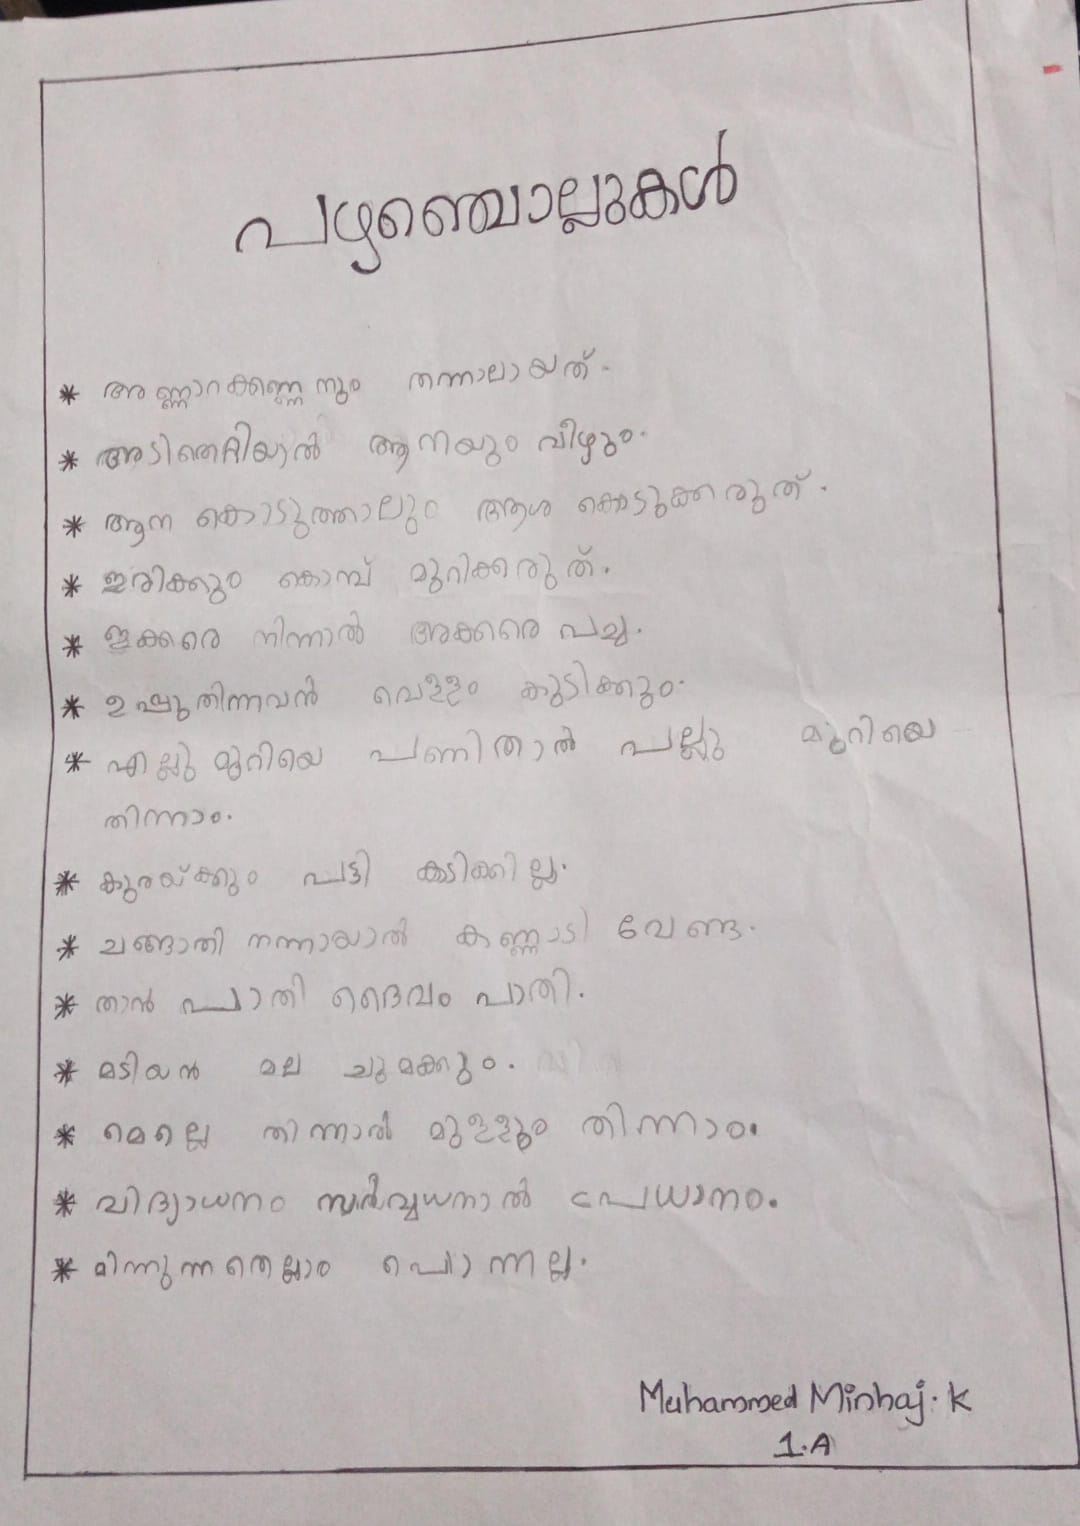 പഴഞ്ചൊല്ലുകൾ
* അണ്ണാറക്കണ്ണനും തന്നാലായത്.
* അടിതെറ്റിയാൽ ആനയും വീഴും.
* ആന കൊടുത്താലും ആശ കൊടുക്കരുത്.
* ഇരിക്കും കൊമ്പ് മുറിക്കരുത്.
* ഇക്കരെ നിന്നാൽ അക്കരെ പച്ച.
* ഉപ്പുതിന്നവൻ വെള്ളം കുടിക്കും.
* എല്ലു മുറിയെ പണിതാൽ പല്ലു മുറിയെ
തിന്നാം.
* കുരയ്ക്കും പട്ടി കടിക്കില്ല.
* ചങ്ങാതി നന്നായാൽ കണ്ണാടി വേണ്ട.
* താൻ പാതി ദൈവം പാതി.
* മടിയൻ മല ചുമക്കും.
* മെല്ലെ തിന്നാൽ മുള്ളും തിന്നാം.
* വിദ്യാധനം സർവ്വധനാൽ പ്രധാനം.
* മിന്നുന്നതെല്ലാം പൊന്നല്ല.
Muhammed Minhaj. K
1.A